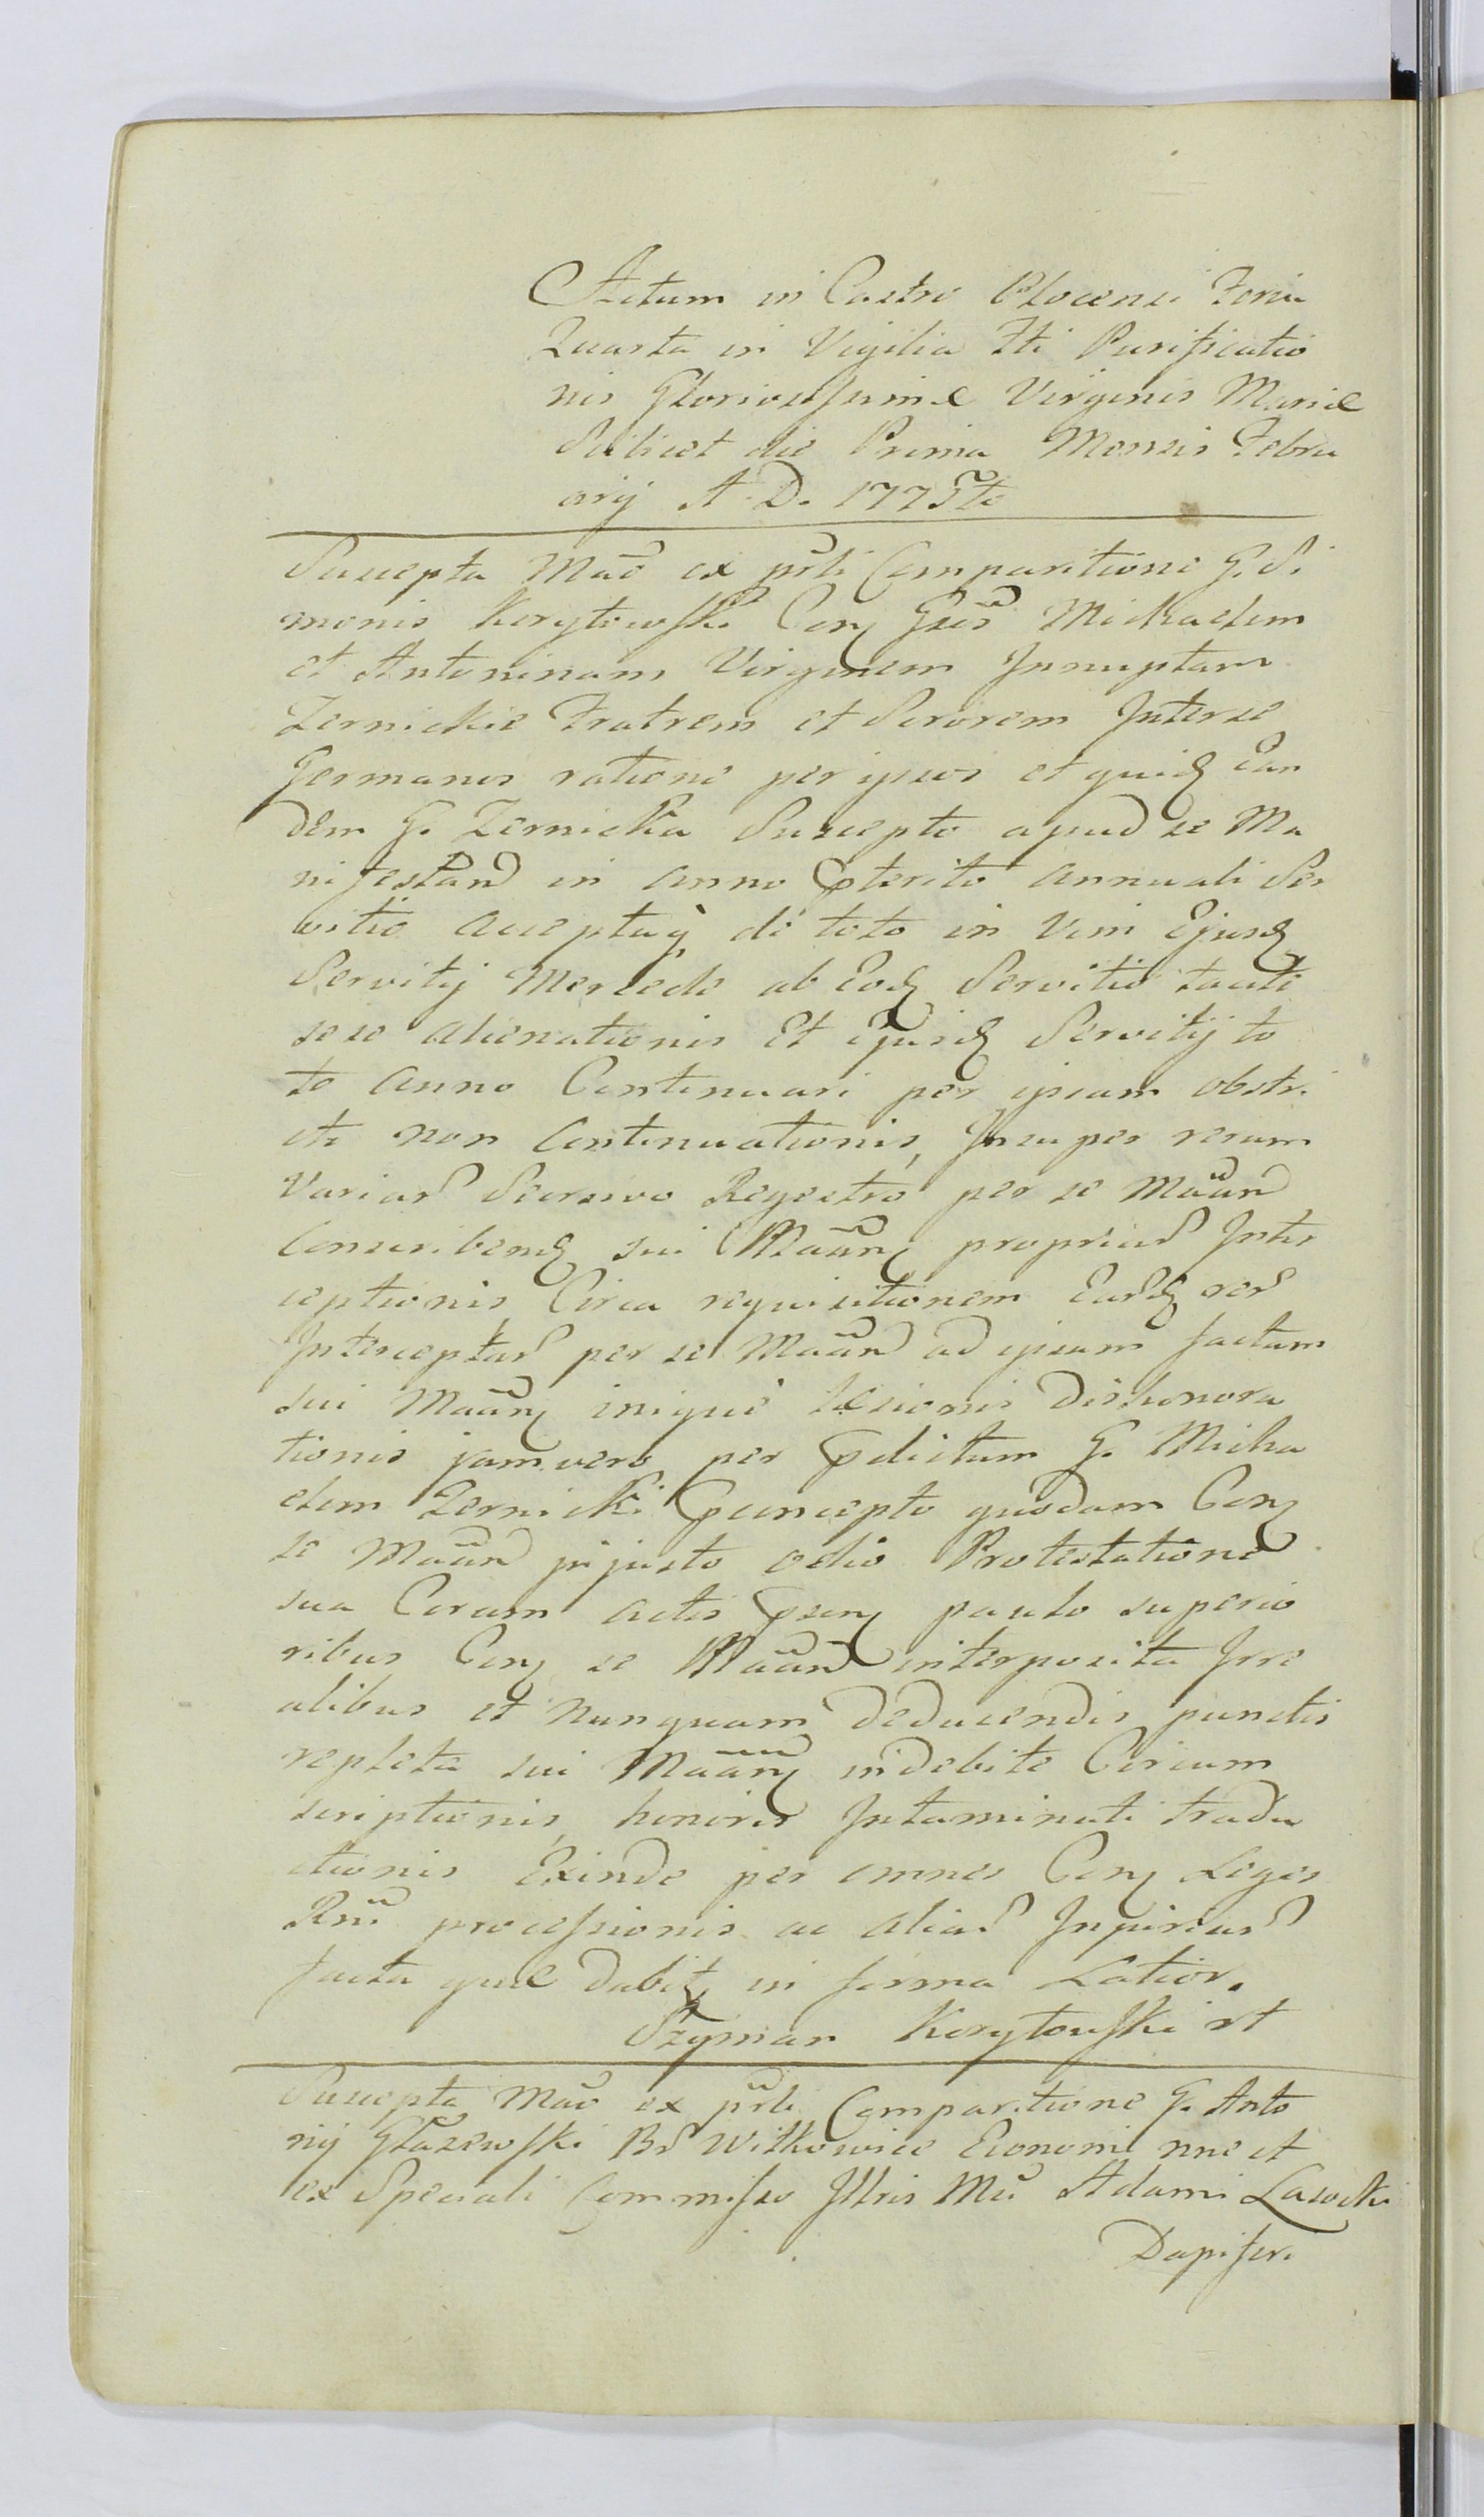 Actum in Castro Plocensi Feria
Quarta in Vigilia Fti Purificatio
nis Gloriosissimæ Virginis Mariæ
Scilicet die Prima Mensis Febru
arij A. D. 1775to
Suscepta Mão ex prli Comparitione G. Si
monis Korytowski Con Gsos Michaelem
et Antoninam Virginem Innuptam
Zernickie Fratrem et Sororem Inter se
Germanos ratione per ipsos et quid Ean
dem G. Zernicka Suscepto apud se Ma
nifestan in anno pterito annuali Ser
vitio acceptaq de toto in vim Ejusd
Servitij Mercede ab Eod Servitio taciti
se se alienationis Et Ejusd Servitij to
to anno Continuari per ipsam obstri
cti non Continuationis, Insuper rerum
Variar Seorsivo Regestro per se Mãan
Conscribend sui Mãan propriar Inter
ceptionis Circa requisitionem Eard rer
Interceptar per se Mãan ad ipsam factam
sui Mãan inique læsionis dishonora
tionis jam vero per pdictum G. Micha
elem Zernicki concepto quodam Con
se Mãan injusto odio Protestatione
sua Coram actis psen paulo superio
ribus Con se Mãan interposita Irre
alibus et nunquam deducendis punctis
repleta sui Mãan indebite Circum
scriptionis, honoris Intaminati tradu
ctionis Exinde per omnes Con Leges
Rni processionis ac aliar Inpiriar
facta quæ dabit in forma Latior.
Szyman Korytowski rt
Suscepta Mão ex prli Comparitione G. Anto
nij Głazewski Br Witkowice Economi nne et
ex Speciali Commisso Illris Mci Adami Lasocki
Dapiferi